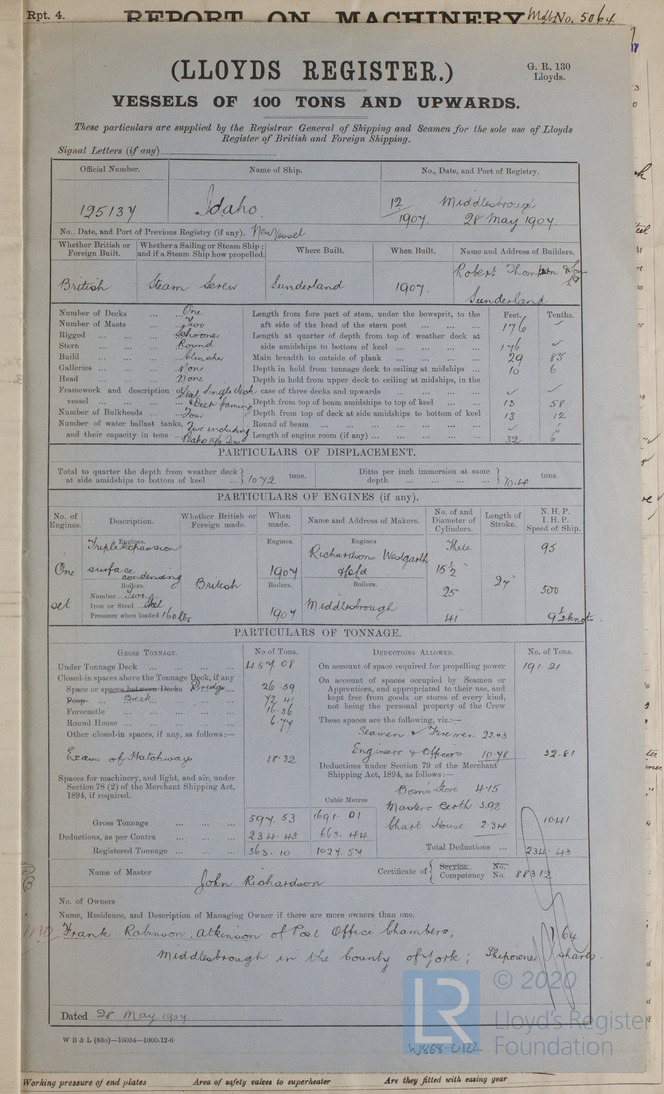 Rpt. 4. REPORT ON MACHINERY Mdb No. 5064
(LLOYDS REGISTER.)
G. R. 130
Lloyds.
VESSELS OF 100 TONS AND UPWARDS.
These particulars are supplied by the Registrar General of Shipping and Seamen for the sole use of Lloyds
Register of British and Foreign Shipping.
Signal Letters (if any)
Official Number. Name of Ship. No., Date, and Port of Registry.
125137 Idaho. 12/1907 Middlesbrough 28 May 1907
No., Date, and Port of Previous Registry (if any). New Vessel
Whether British or Foreign Built. Whether a Sailing or Steam Ship; and if a Steam Ship how propelled. Where Built. When Built. Name and Address of Builders.
British Steam Screw Sunderland 1907. Robert Thompson & Sons Ld Sunderland
Number of Decks ... One
Number of Masts ... Two
Rigged ... Schooner
Stern ... Round
Build ... Clincher
Galleries ... None
Head ... None
Framework and description of vessel ... Steel Single deck & Deep framing
Number of Bulkheads ... Four
Number of water ballast tanks, and their capacity in tons ... Five including
Length from fore part of stem, under the bowsprit, to the aft side of the head of the stern post ... Feet. Tenths. 176
Length at quarter of depth from top of weather deck at side amidships to bottom of keel ... 176
Main breadth to outside of plank ... 29 85
Depth in hold from tonnage deck to ceiling at midships ... 10 6
Depth in hold from upper deck to ceiling at midships, in the case of three decks and upwards ...
Depth from top of beam amidships to top of keel ... 13 58
Depth from top of deck at side amidships to bottom of keel 13 12
Round of beam ...
Length of engine room (if any) ... 32 6
PARTICULARS OF DISPLACEMENT.
Total to quarter the depth from weather deck at side amidships to bottom of keel ... 1072 tons. Ditto per inch immersion at same depth ... 10.40 tons.
PARTICULARS OF ENGINES (if any).
No. of Engines. Description. Whether British or Foreign made. When made. Name and Address of Makers. No. of and Diameter of Cylinders. Length of Stroke. N. H. P. I. H. P. Speed of Ship.
One set
Engines. Triple expansion surface condensing
Boilers. Number Two Iron or Steel Steel Pressure when loaded 160 lbs
British
Engines. 1907
Boilers. 1907
Engines Richardsons Westgarth & Co Ld
Boilers. Middlesbrough
Three 15½" 25" 41" 27"
95 500 9½ knots.
PARTICULARS OF TONNAGE.
GROSS TONNAGE. No of Tons. DEDUCTIONS ALLOWED. No. of Tons.
Under Tonnage Deck ... 457 08
Closed-in spaces above the Tonnage Deck, if any
Space or spaces between Decks Bridge ... 26 59
Poop Break ... 72 41
Forecastle ... 16.36
Round House ... 6.77
Other closed-in spaces, if any, as follows:—
Excess of Hatchways 18.32
Spaces for machinery, and light, and air, under
Section 78 (2) of the Merchant Shipping Act,
1894, if required.
Cubic Metres
Gross Tonnage 597.53 1691.01
Deductions, as per Contra ... 234.43 663.44
Registered Tonnage ... 363.10 1027.57
On account of space required for propelling power 191 21
On account of spaces occupied by Seamen or
Apprentices, and appropriated to their use, and
kept free from goods or stores of every kind,
not being the personal property of the Crew
These spaces are the following, viz.:—
Seamen & Firemen 22.03
Engineers & Officers 10.78 32.81
Deductions under Section 79 of the Merchant
Shipping Act, 1894, as follows:—
Bosn's Store 4.15
Masters Berth 3.92
Chart House 2.34 10.41
Total Deductions ... 234.43
Name of Master John Richardson Certificate of Service. Competency No. No. 88312
No. of Owners
Name, Residence, and Description of Managing Owner if there are more owners than one.
Frank Robinson Atkinson of Post Office Chambers, 64
Middlesbrough in the County of York; Shipowner shares.
Dated 28 May 1907
W B & L (83o)—16034—1000-12-6
© 2020
LR
Lloyd's Register
Foundation
W868-0122
Working pressure of end plates Area of safety valves to superheater Are they fitted with easing gear